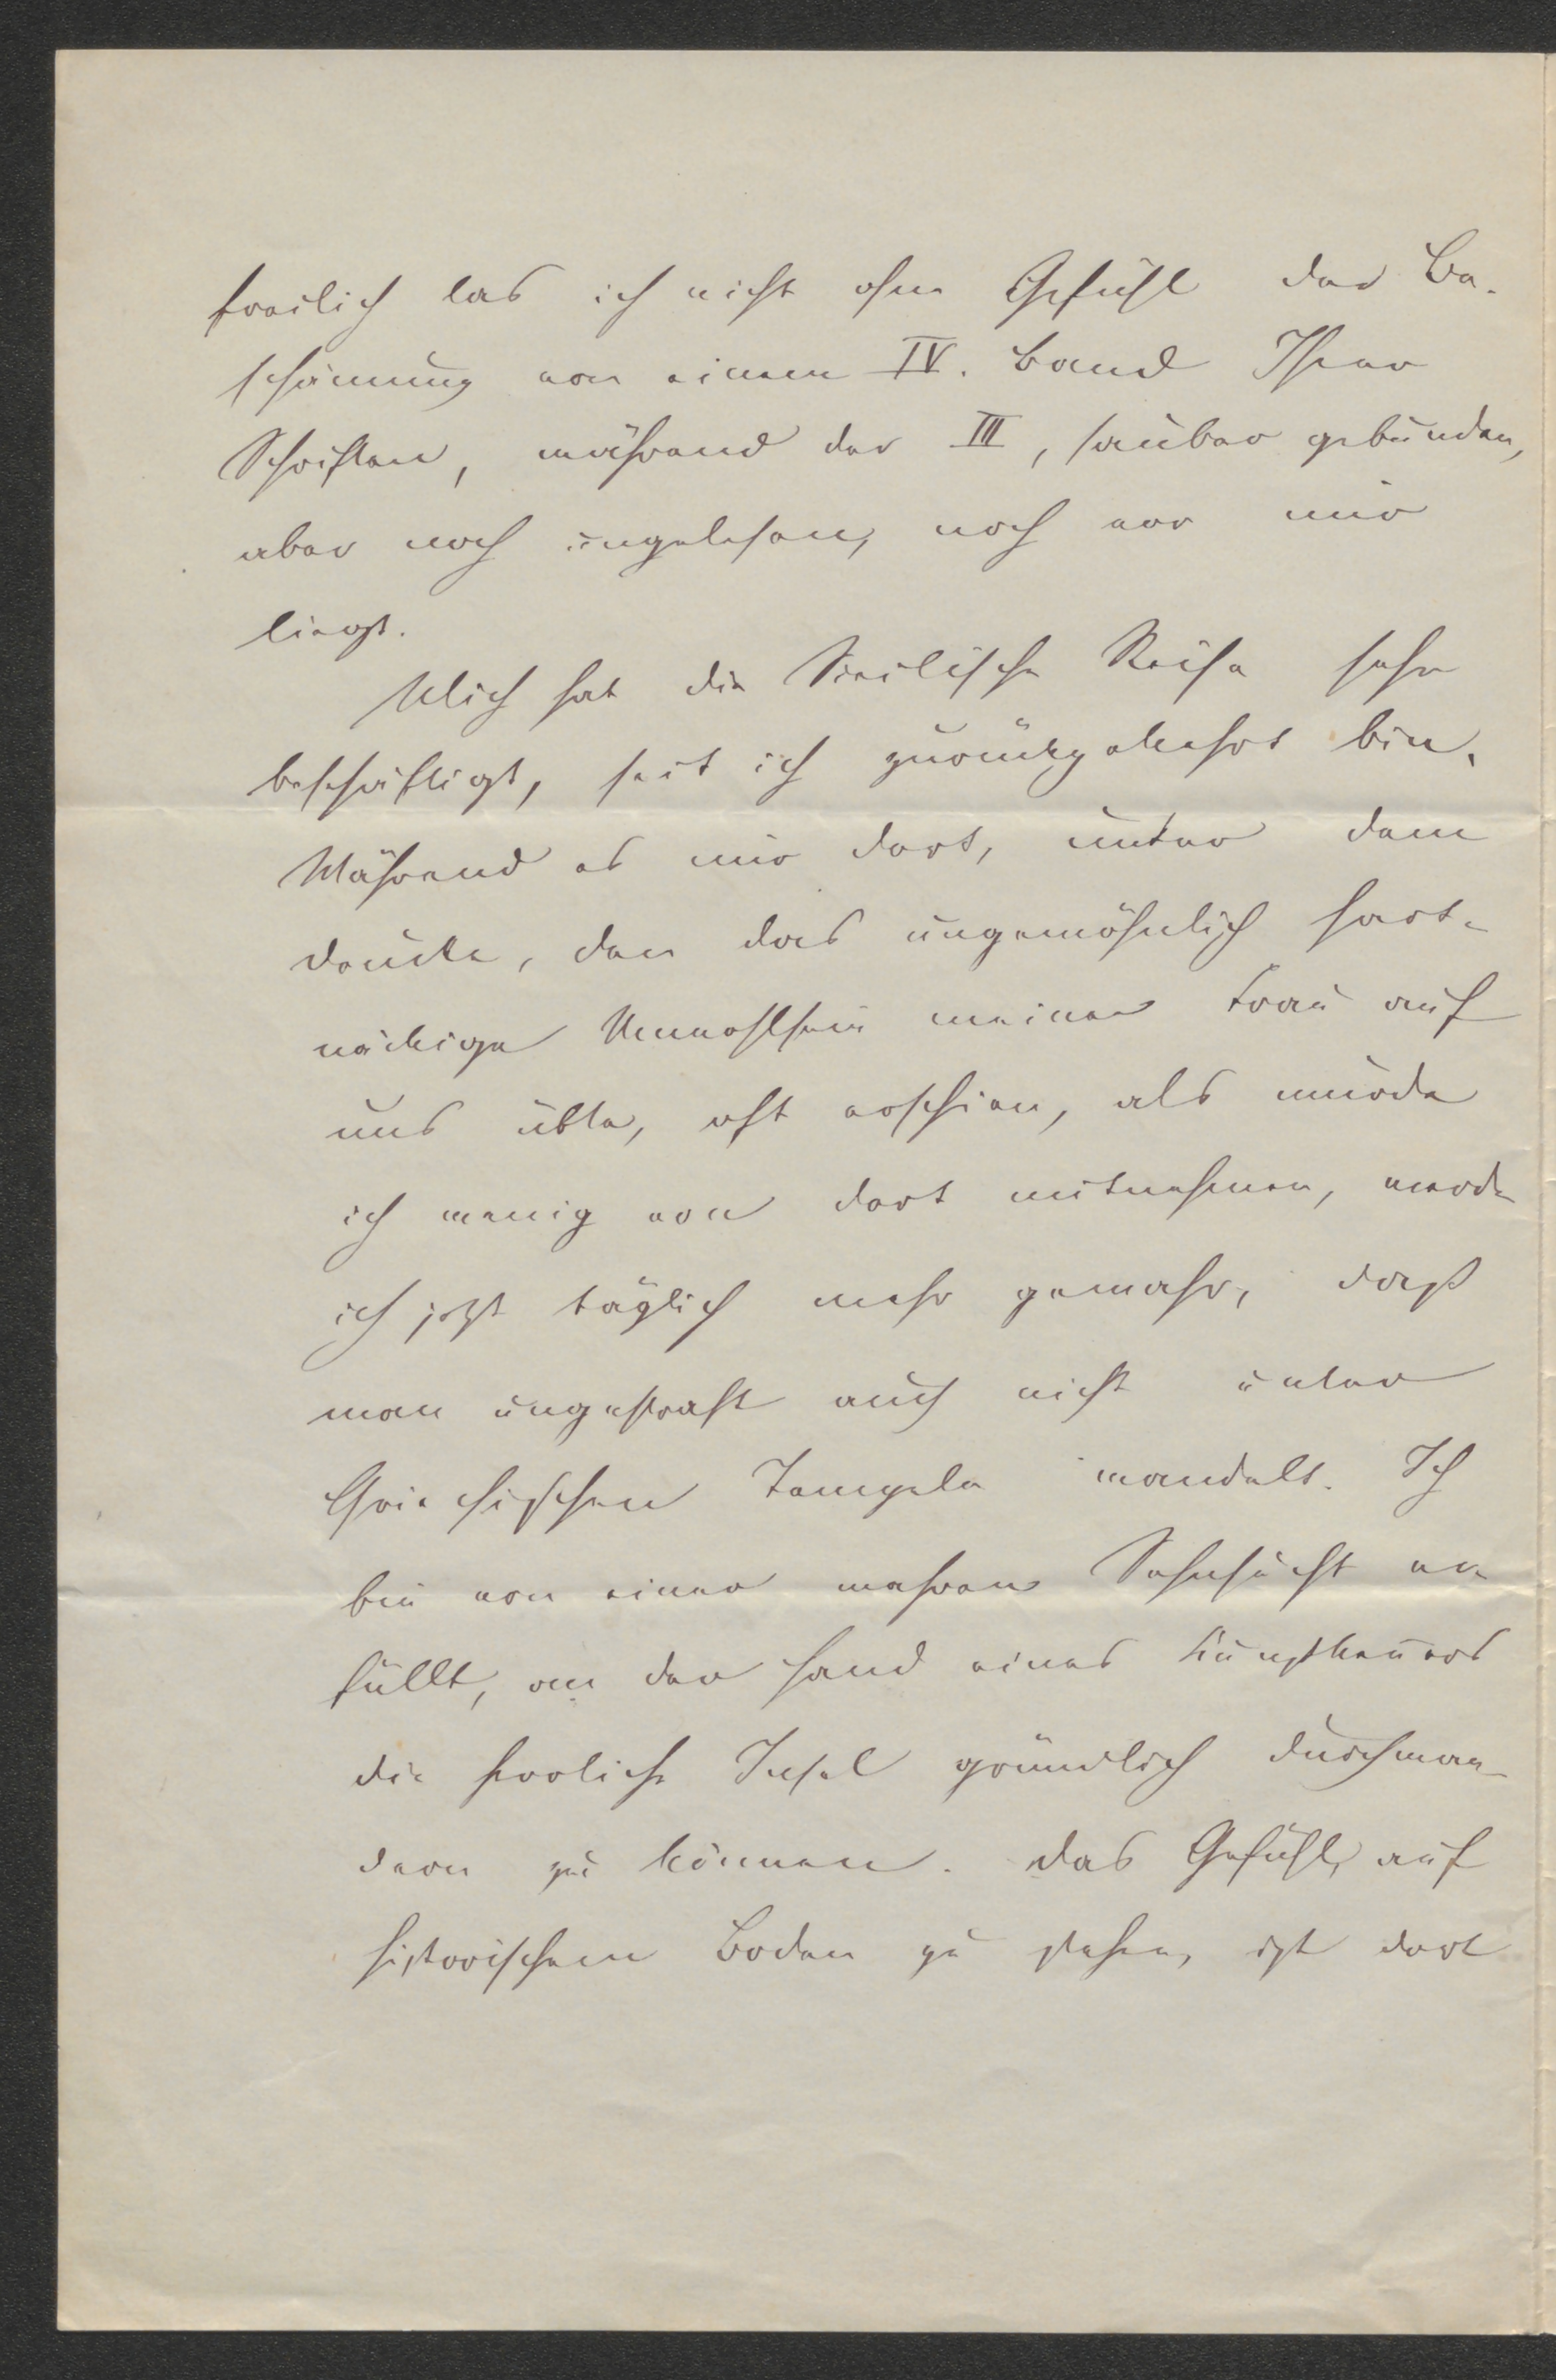 freilich las ich nicht ohne Gefühl der Be-
schämung von einem IV. Band Ihrer
Schriften, während der III, sauber gebunden,
aber noch ungelesen, noch vor mir
liegt.
Mich hat die Sicilische Reise sehr
beschäftigt, seit ich zurückgekehrt bin.
Während es mir dort, unter dem
Drucke, den das ungewöhnlich hart-
näckige Unwohlsein meiner Frau auf
uns übte, oft erschien, als würde
ich wenig von dort mitnehmen, werde
ich jetzt täglich mehr gewahr, daß
man ungestraft auch nicht unter
Griechischen Tempeln wandelt. Ich
bin von einer wahren Sehnsucht er-
füllt, an der Hand eines Kunstkenners
die herrliche Insel gründlich durchwan-
dern zu können. Das Gefühl, auf
historischem Boden zu stehen, ist dort